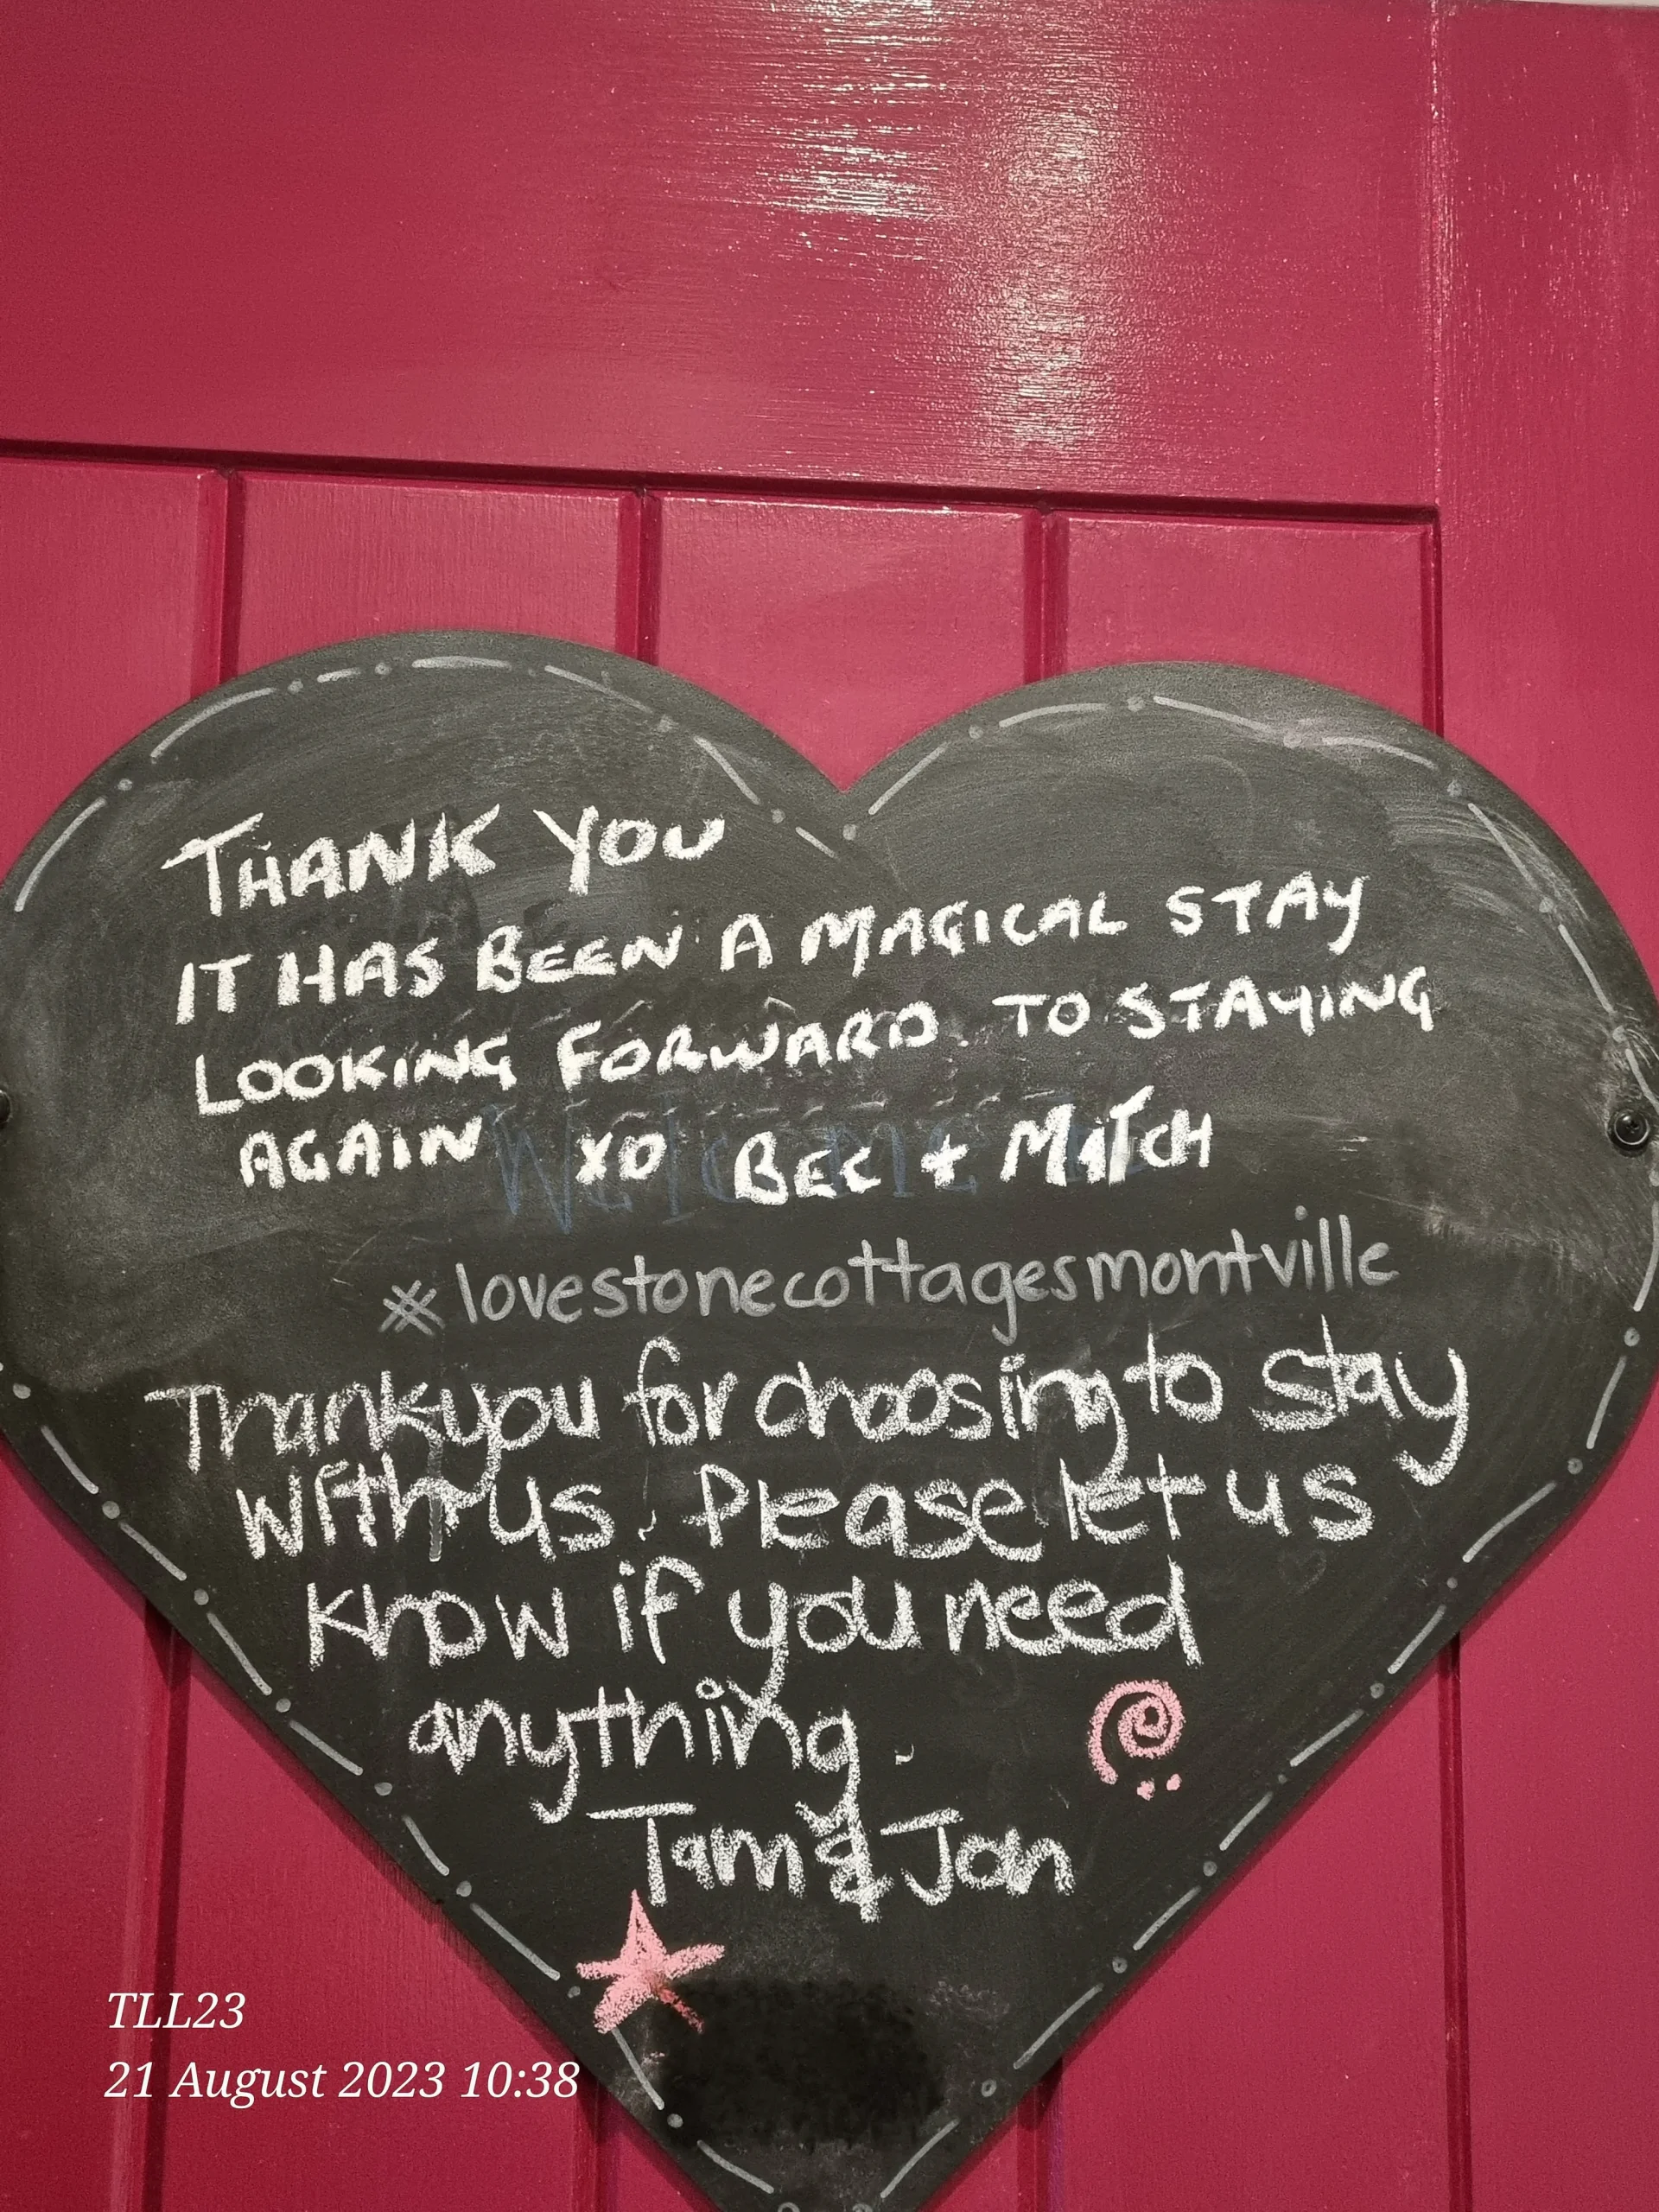 THANK YOU
IT HAS BEEN A MAGICAL STAY
LOOKING FORWARD TO STAYING
AGAIN XO BEC + MITCH
Welcome
#lovestonecottagesmontville
Thankyou for choosing to stay
with us. Please let us
know if you need
anything.
Tam & Jon
TLL23
21 August 2023 10:38